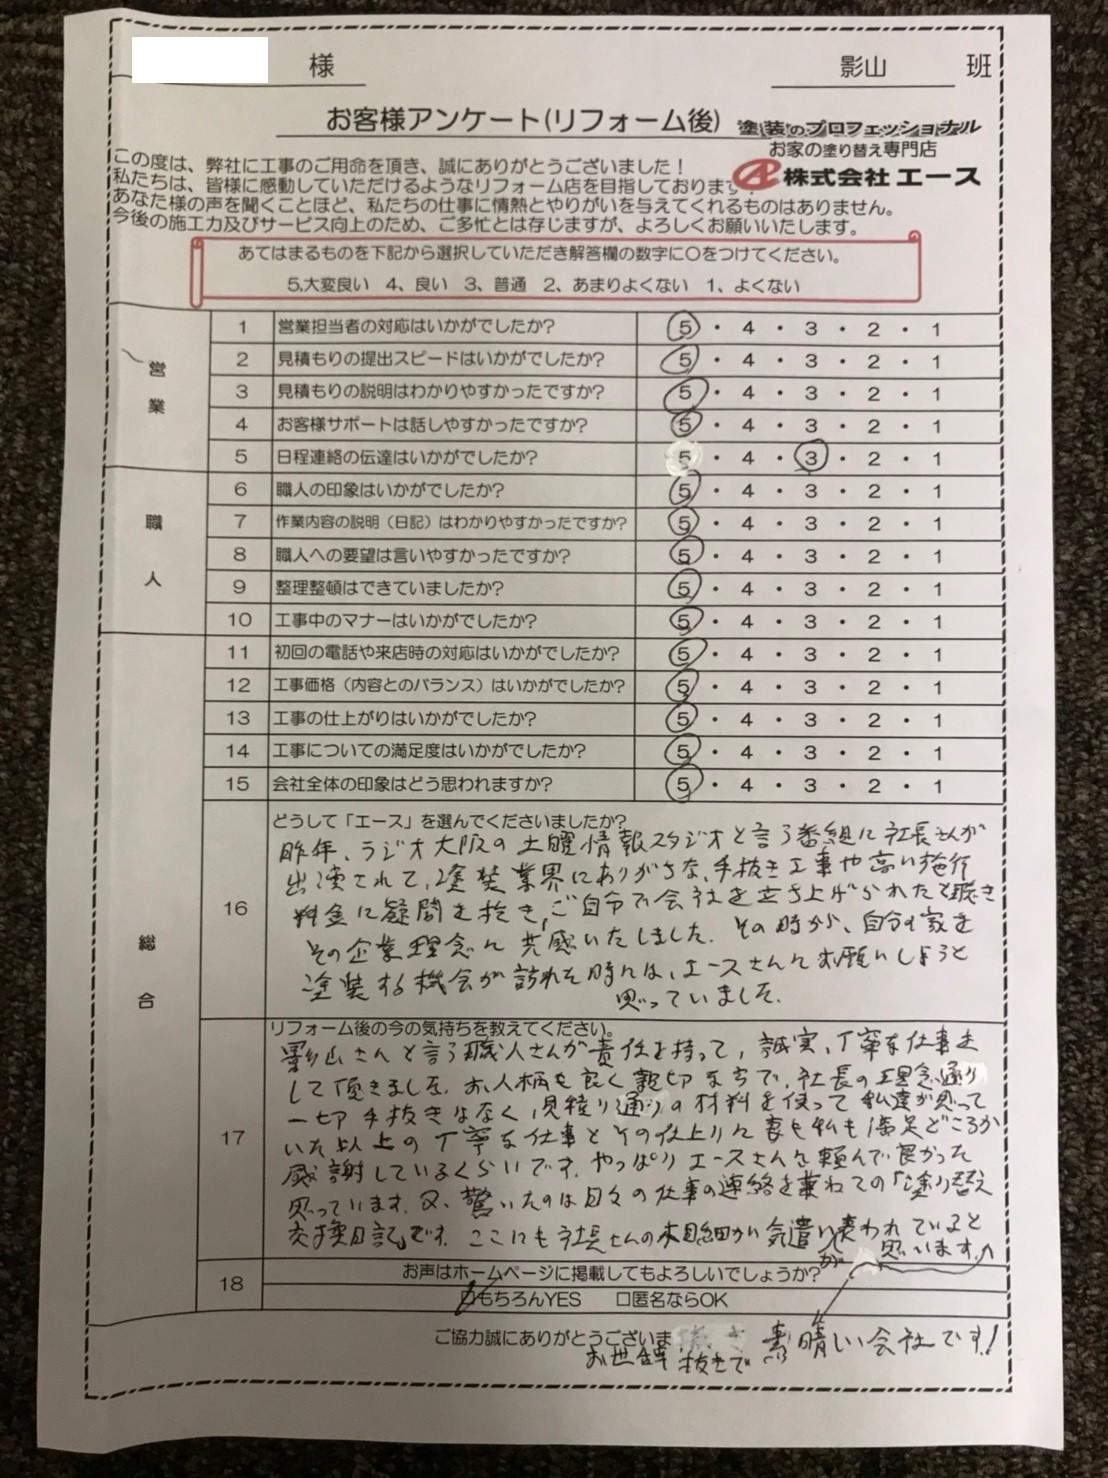 様
影山 班
お客様アンケート(リフォーム後)
塗装のプロフェッショナル
お家の塗り替え専門店
株式会社 エース
この度は、弊社に工事のご用命を頂き、誠にありがとうございました!
私たちは、皆様に感動していただけるようなリフォーム店を目指しております
あなた様の声を聞くことほど、私たちの仕事に情熱とやりがいを与えてくれるものはありません。
今後の施工力及びサービス向上のため、ご多忙とは存じますが、よろしくお願いいたします。
あてはまるものを下記から選択していただき解答欄の数字に○をつけてください。
5,大変良い 4、良い 3、普通 2、あまりよくない 1、よくない
営業
1 営業担当者の対応はいかがでしたか? 5・4・3・2・1
2 見積もりの提出スピードはいかがでしたか? 5・4・3・2・1
3 見積もりの説明はわかりやすかったですか? 5・4・3・2・1
4 お客様サポートは話しやすかったですか? 5・4・3・2・1
5 日程連絡の伝達はいかがでしたか? 5・4・3・2・1
職人
6 職人の印象はいかがでしたか? 5・4・3・2・1
7 作業内容の説明(日記)はわかりやすかったですか? 5・4・3・2・1
8 職人への要望は言いやすかったですか? 5・4・3・2・1
9 整理整頓はできていましたか? 5・4・3・2・1
10 工事中のマナーはいかがでしたか? 5・4・3・2・1
総合
11 初回の電話や来店時の対応はいかがでしたか? 5・4・3・2・1
12 工事価格(内容とのバランス)はいかがでしたか? 5・4・3・2・1
13 工事の仕上がりはいかがでしたか? 5・4・3・2・1
14 工事についての満足度はいかがでしたか? 5・4・3・2・1
15 会社全体の印象はどう思われますか? 5・4・3・2・1
16 どうして「エース」を選んでくださいましたか?
昨年、ラジオ大阪の土曜情報スタジオと言う番組に社長さんが
出演されて、塗装業界にありがちな、手抜き工事や高い施行
料金に疑問を抱き、ご自分で会社を立ち上げられたと聴き
その企業理念に共感いたしました。その時から、自分の家を
塗装する機会が訪れた時には、エースさんにお願いしようと
思っていました。
17 リフォーム後の今の気持ちを教えてください。
影山さんと言う職人さんが責任を持って、誠実、丁寧な仕事を
して頂きました。お人柄も良く親切な方で、社長の理念通り
一切手抜きはなく、見積り通りの材料を使って私達が思って
いた以上の丁寧な仕事とその仕上りに妻も私も満足どころか
感謝しているくらいです。やっぱりエースさんに頼んで良かった
思っています。又、驚いたのは日々の仕事の連絡を兼ねての「塗り替え
交換日記」です。ここにも社長さんの木目細かい気遣いが表われていると
思います。
18 お声はホームページに掲載してもよろしいでしょうか?
☑もちろんYES □匿名ならOK
ご協力誠にありがとうございま
お世辞抜きで素晴しい会社です!